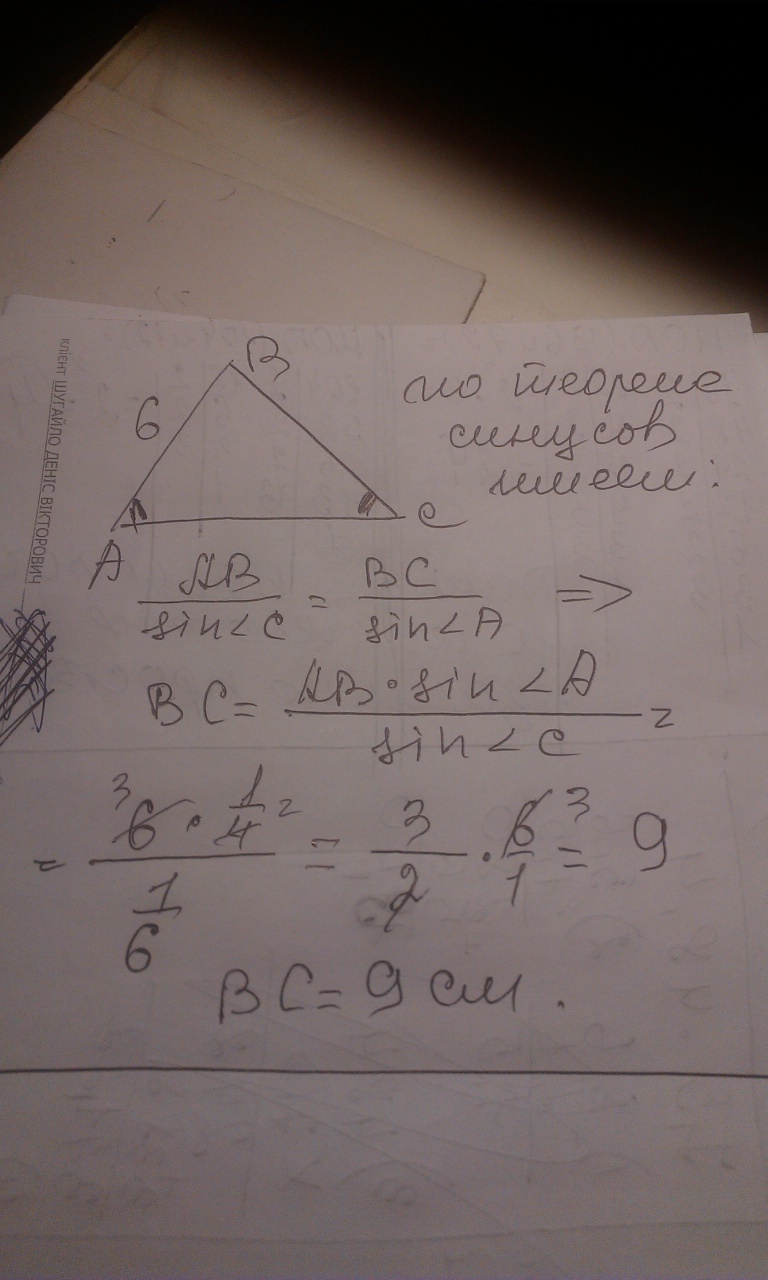 КЛІЄНТ ШУГАЙЛО ДЕНІС ВІКТОРОВИЧ
B
6
A
C
по теореме
синусов
имеем:
AB/sin<C = BC/sin<A =>
BC = AB·sin<A/sin<C =
= 6·1/4/1/6 = 3/2 · 6/1 = 9
3
2
3
BC = 9 см.